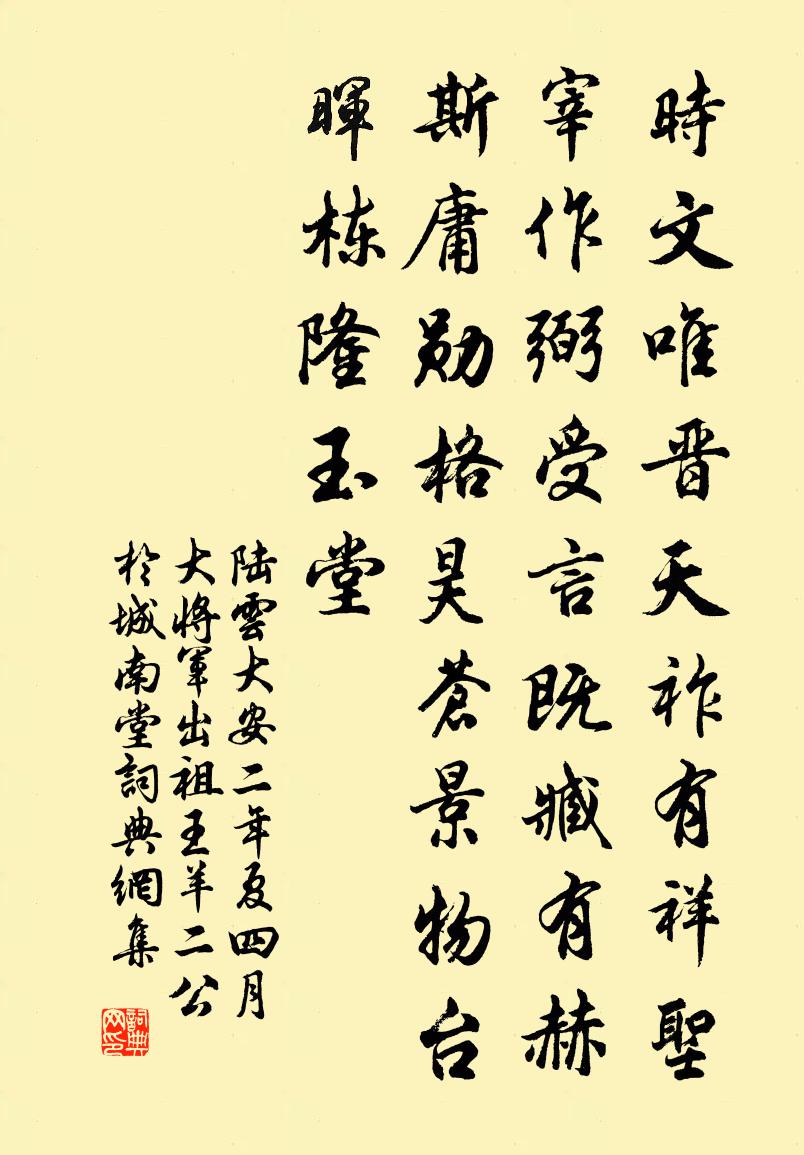 時文唯晋天祚有祥聖
宰作弼受言既臧有赫
斯庸勋格昊蒼景物台
暉栋隆玉堂
陆雲大安二年夏四月
大將軍出祖王羊二公
於城南堂詞典網集
詞典网印